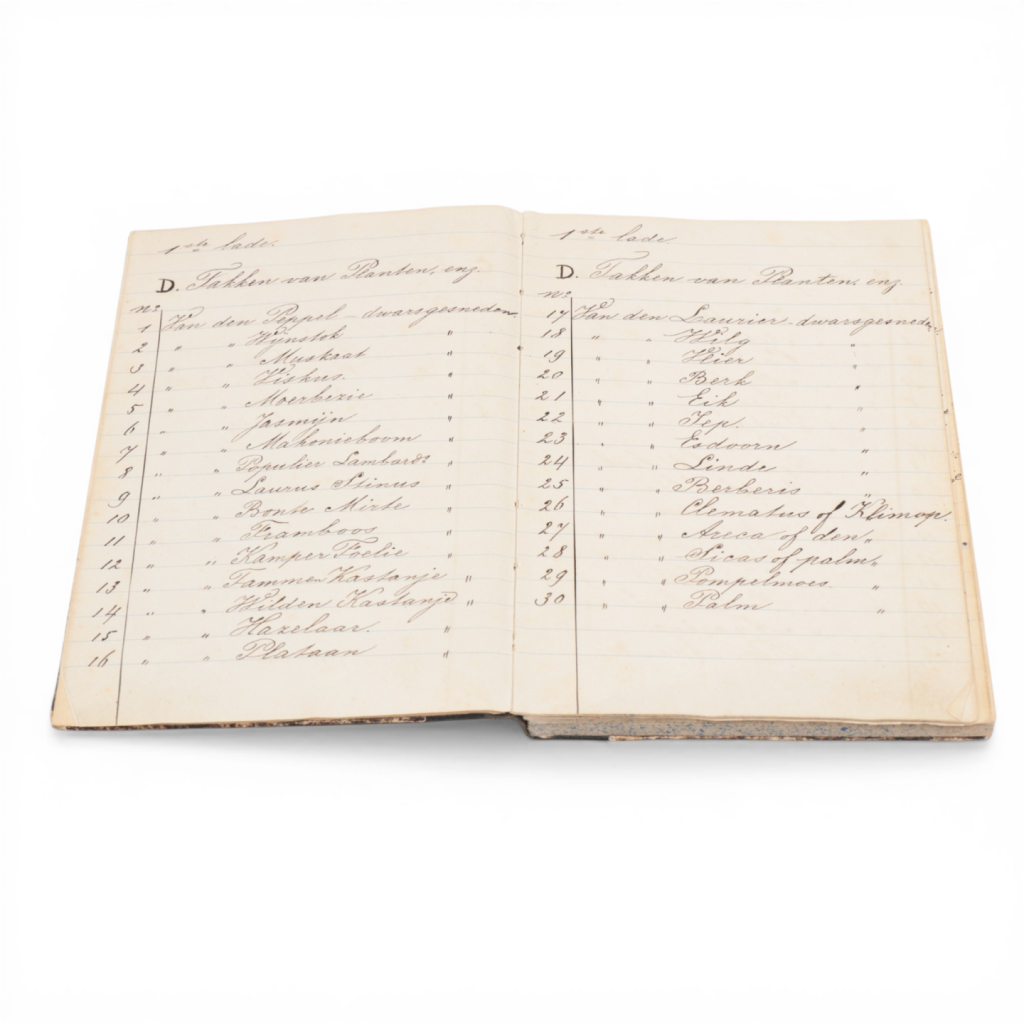 1ste lade.
D. Takken van Planten, enz.
No
1 Van den Peppel - dwarsgesneden.
2 " " Wijnstok "
3 " " Muskaat "
4 " " Viskus. "
5 " " Moerbezie "
6 " " Jasmijn "
7 " " Mahonieboom "
8 " " Populier Lambards "
9 " " Laurus Stinus "
10 " " Bonte Mirte "
11 " " Framboos "
12 " " Kamper Foelie "
13 " " Tammen Kastanje "
14 " " Wilden Kastanje "
15 " " Hazelaar. "
16 " " Plataan "
1ste lade.
D. Takken van Planten, enz.
No
17 Van den Laurier - dwarsgesneden
18 " " Wilg "
19 " " Vlier "
20 " " Berk "
21 " " Eik "
22 " " Iep. "
23 " " Esdoorn "
24 " " Linde "
25 " " Berberis "
26 " " Clematus of Klimop.
27 " " Areca of den "
28 " " Sicas of palm "
29 " " Pompelmoes "
30 " " Palm "